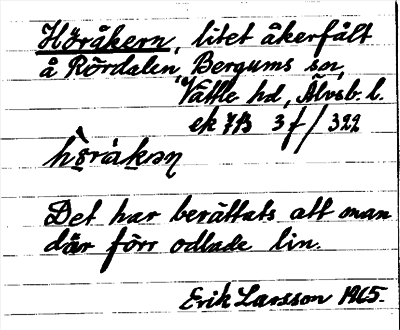 Höråkern, litet åkerfält
å Rördalen, Bergums sn,
Vättle hd, Älvsb. l.
ek 7B 3 f / 322
hö̀råkəɳ
Det har berättats att man
där förr odlade lin.
Erik Larsson 1965.